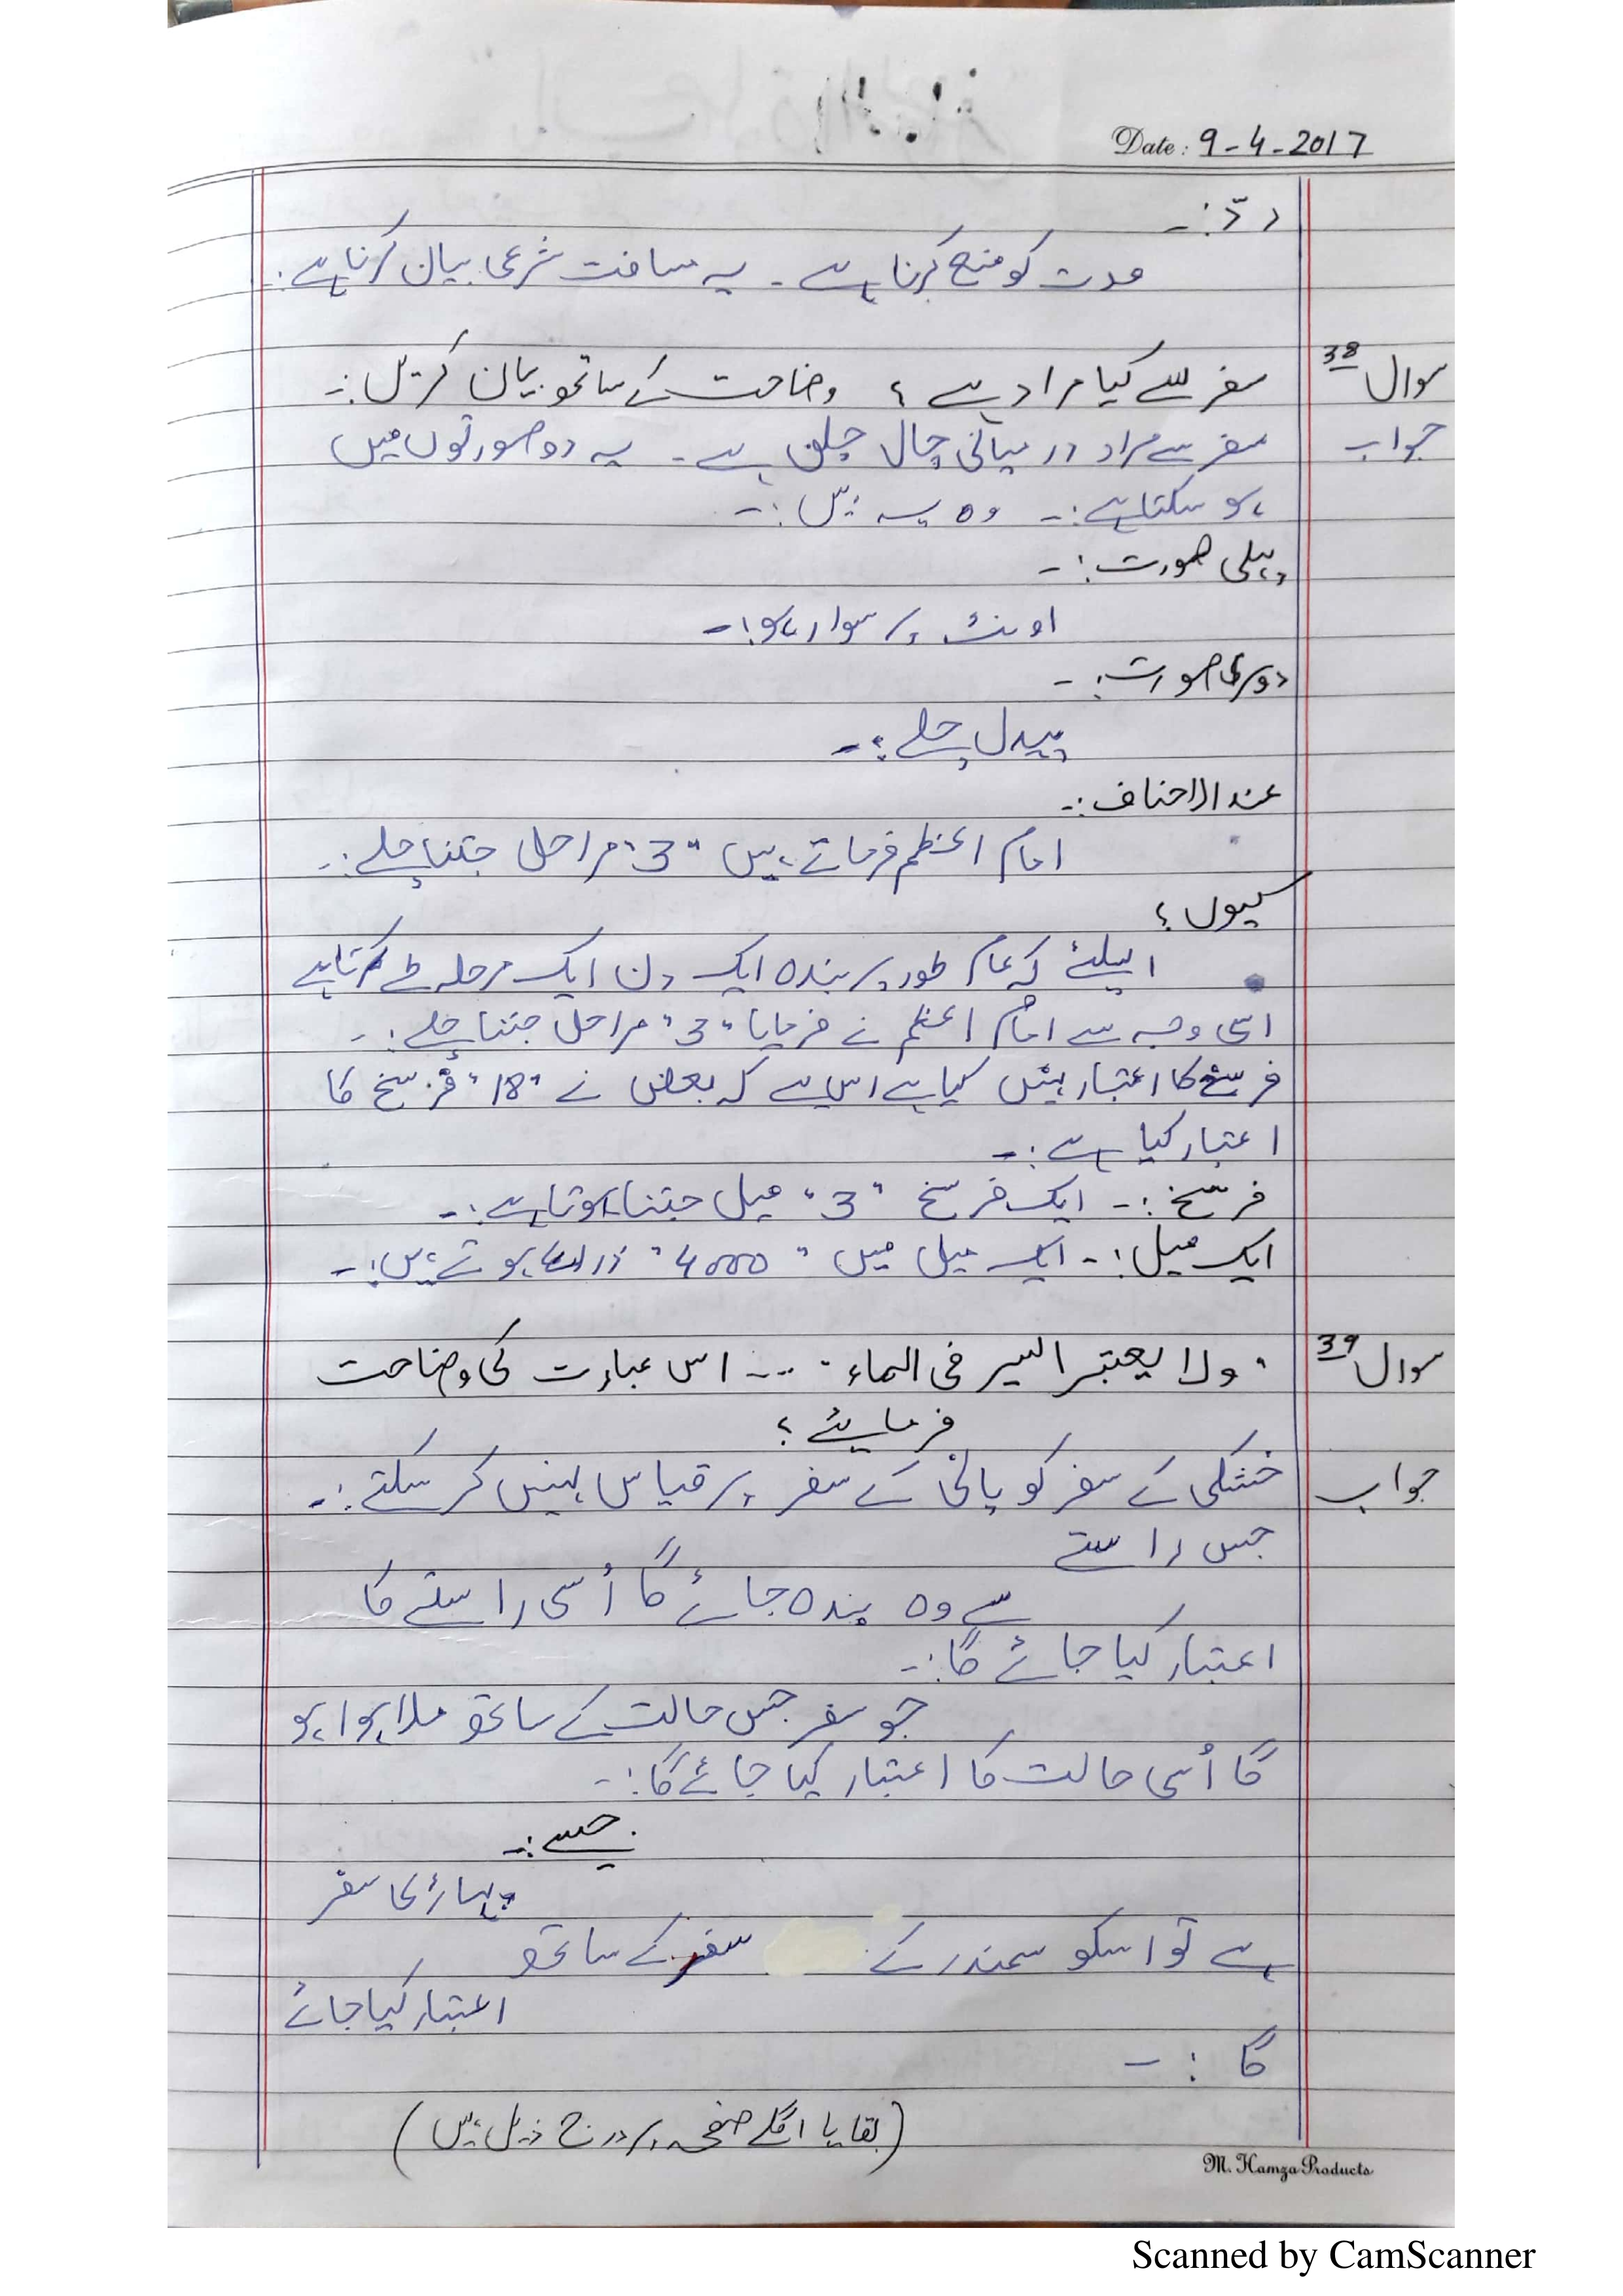 Date: 9-4-2017
ردّ:۔
مدت کو منع کرنا ہے ۔ یہ مسافت شرعی بیان کرنا ہے:۔
سوال 38 سفر سے کیا مراد ہے ؟ وضاحت کے ساتھ بیان کریں:۔
جواب سفر سے مراد درمیانی چال چلنا ہے ۔ یہ دو صورتوں میں
ہو سکتا ہے:۔ وہ یہ ہیں:۔
پہلی صورت:۔
اونٹ پر سوار ہو:۔
دوسری صورت:۔
پیدل چلے:۔
عند الاحناف:۔
امام اعظم فرماتے ہیں "3" مراحل جتنا چلے:۔
کیوں ؟
اسلئے کہ عام طور پر بندہ ایک دن ایک مرحلہ طے کرتا ہے
اسی وجہ سے امام اعظم نے فرمایا "3" مراحل جتنا چلے:۔
فرسخ کا اعتبار نہیں کیا ہے اس لیے کہ بعض نے "18" فرسخ کا
اعتبار کیا ہے:۔
فرسخ:۔ ایک فرسخ "3" میل جتنا ہوتا ہے:۔
ایک میل:۔ ایک میل میں "4000" ہوتے ہیں:۔
سوال 39 "ولا يعتبر السير فی الماء" ... اس عبارت کی وضاحت
فرمایئے ؟
جواب خشکی کے سفر کو پانی کے سفر پر قیاس نہیں کر سکتے:۔
جس راستے
سے وہ بندہ جائے گا اُسی راستے کا
اعتبار کیا جائے گا:۔
جو سفر جس حالت کے ساتھ ملا ہوا ہو
گا اُسی حالت کا اعتبار کیا جائے گا:۔
جیسے:۔
پہاڑی کا سفر
ہے تو اسکو سمندر کے سفر کے ساتھ
اعتبار کیا جائے
گا :۔
(بقایا اگلے صفحہ پر درج ذیل ہیں)
M. Hamza Products
Scanned by CamScanner